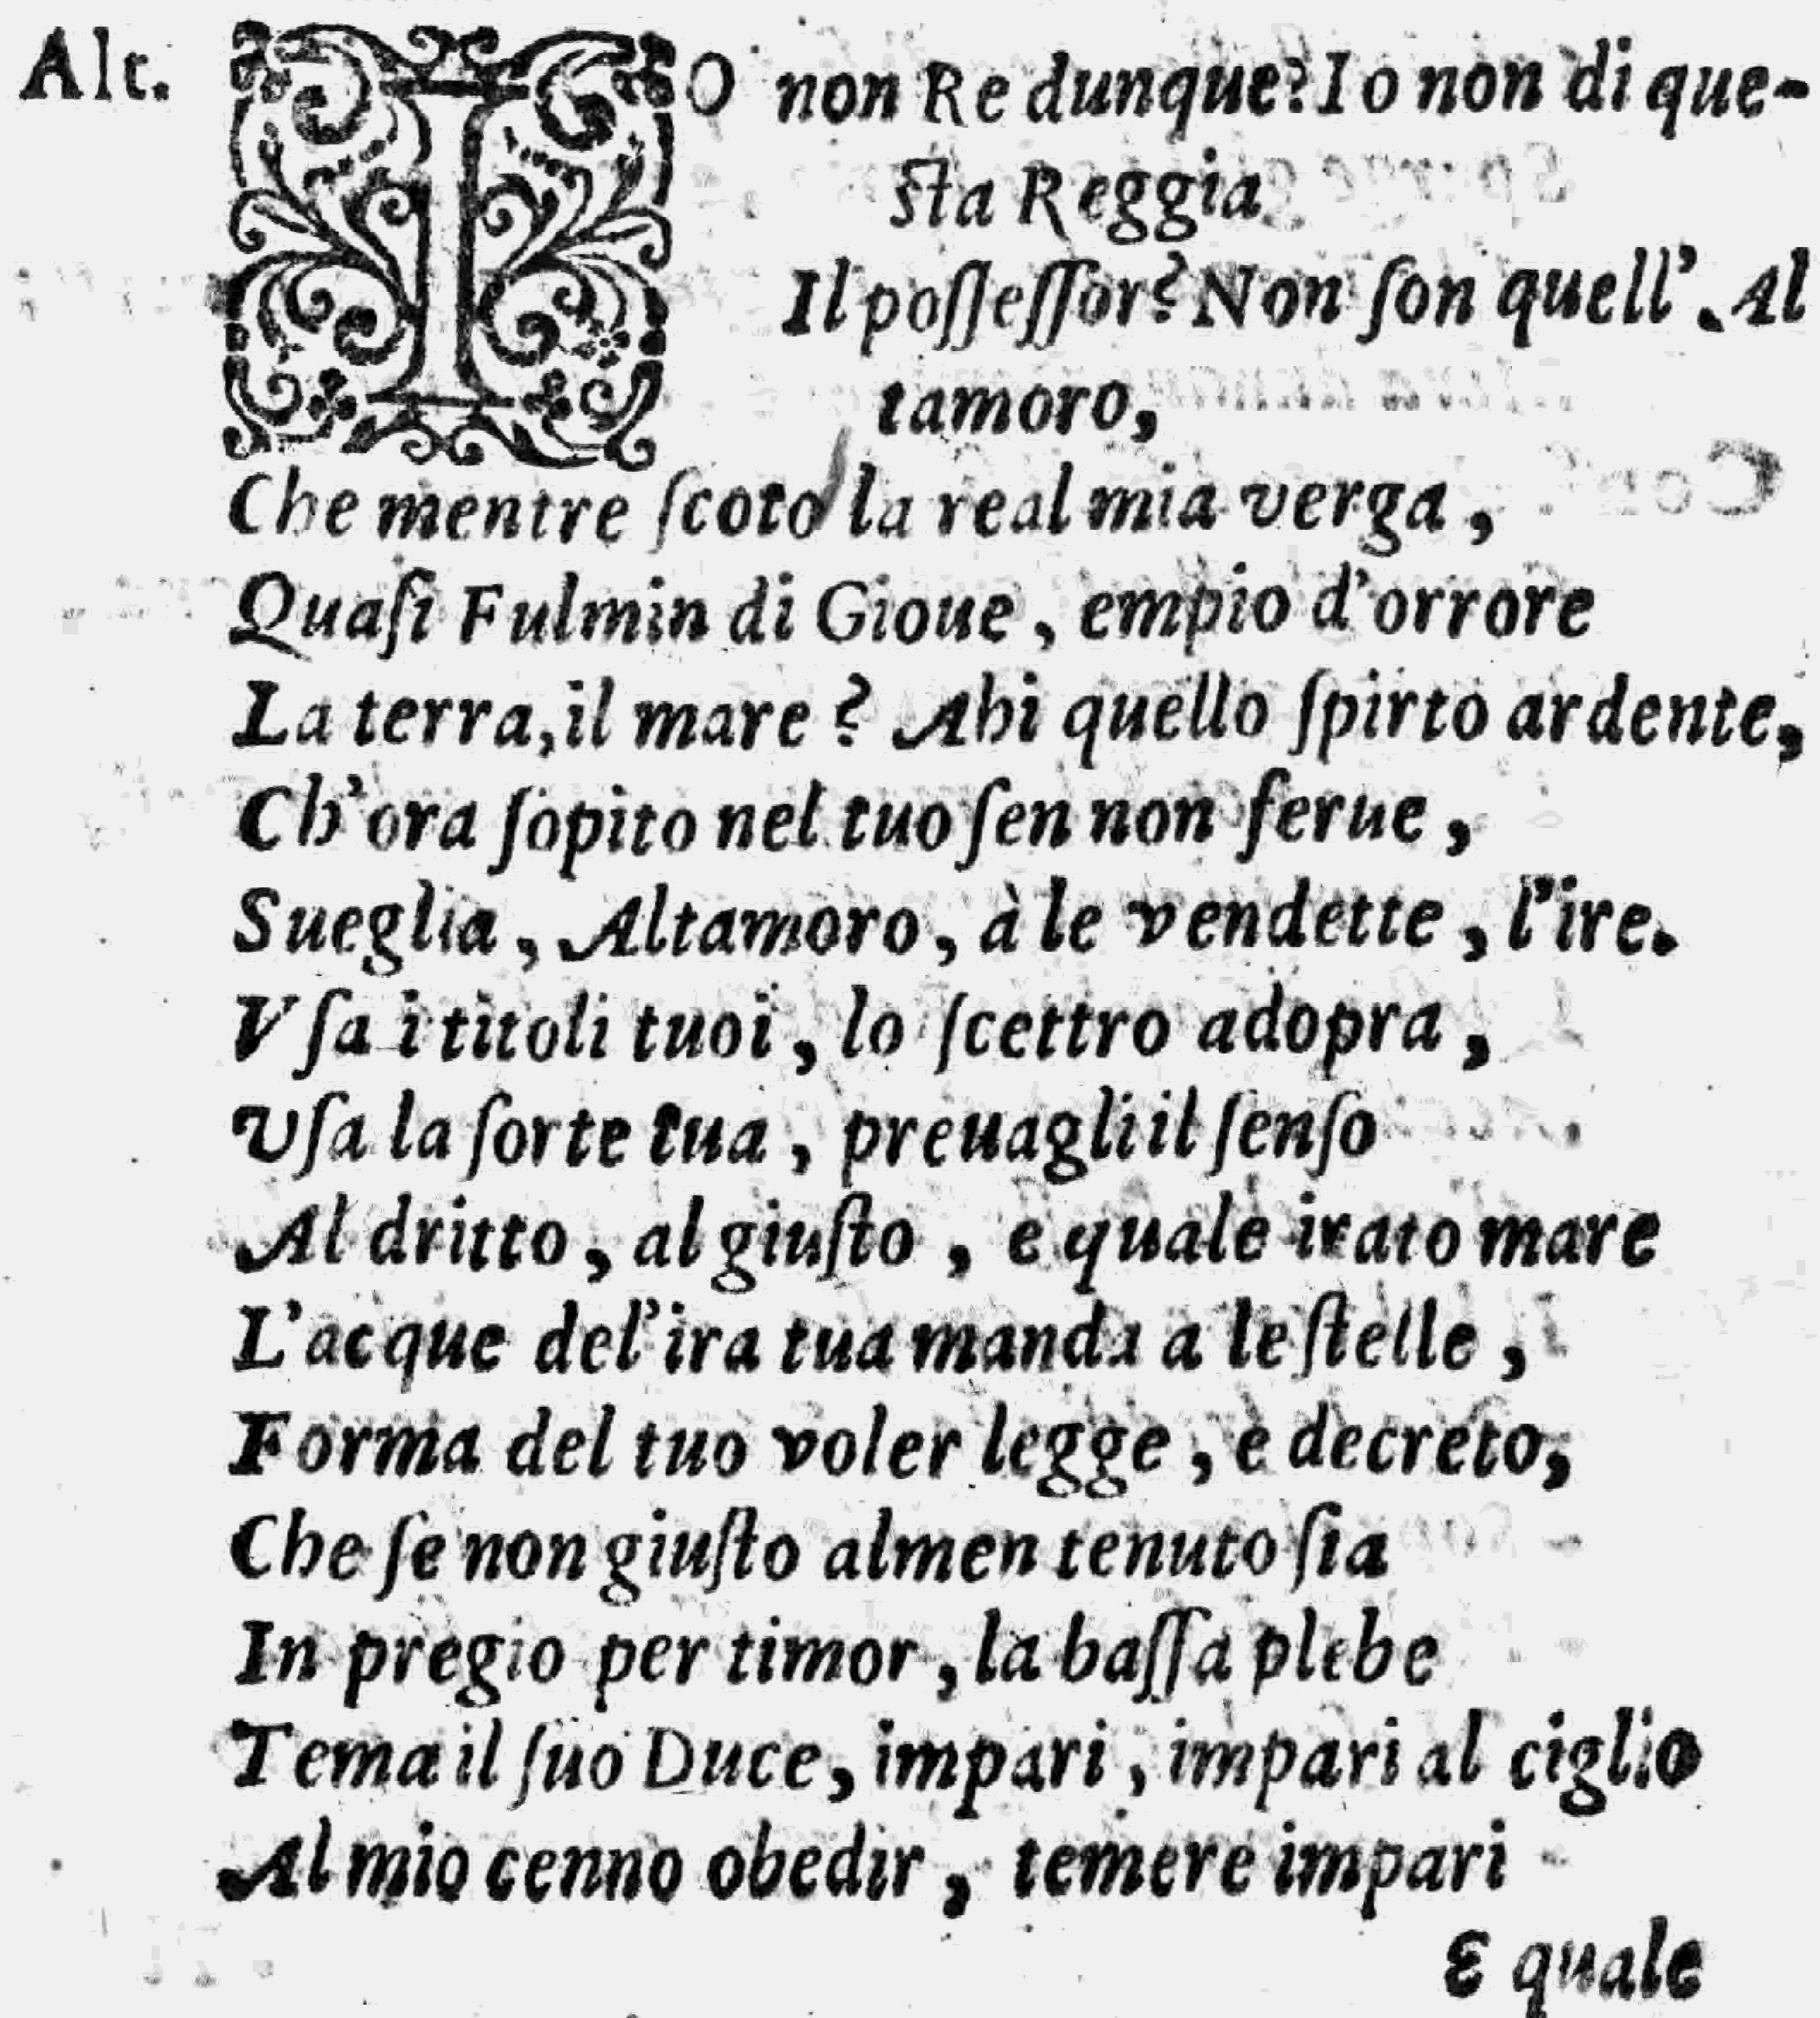 Alt. IO non Re dunque? Io non di que-
ſta Reggia
Il poſſeſſor? Non ſon quell'. Al
tamoro,
Che mentre ſcoto la real mia verga,
Quaſi Fulmin di Gioue, empio d'orrore
La terra, il mare? Ahi quello ſpirto ardente,
Ch'ora ſopito nel tuo ſen non ferue,
Sueglia, Altamoro, à le vendette, l'ire.
Vſa i titoli tuoi, lo ſcettro adopra,
Vſa la ſorte tua, preuagli il ſenſo
Al dritto, al giuſto, e quale irato mare
L'acque del'ira tua manda a le ſtelle,
Forma del tuo voler legge, e decreto,
Che ſe non giuſto almen tenuto ſia
In pregio per timor, la baſſa plebe
Tema il ſuo Duce, impari, impari al ciglio
Al mio cenno obedir, temere impari
E quale